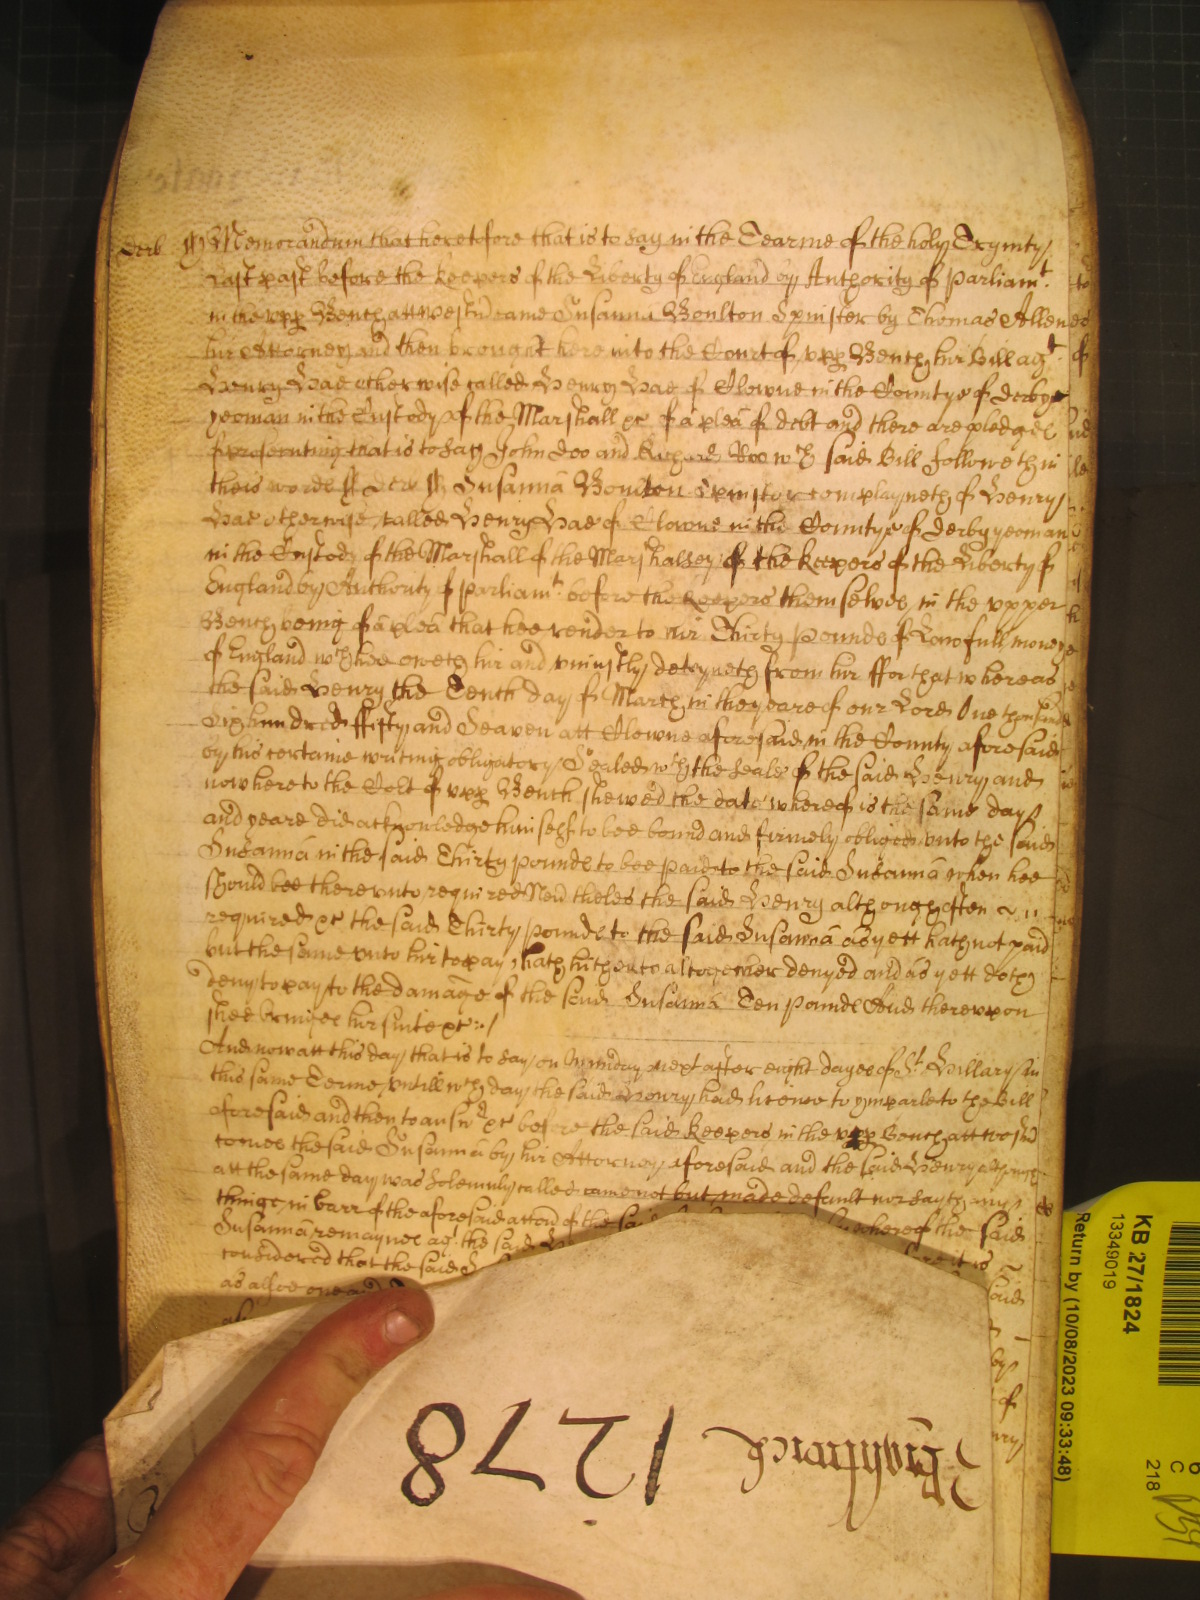 Derb Memorandum that heretofore that is to say in the Tearme of the holy Trynity
Last past before the Keepers of the Liberty of England by Authority of Parliamt
in the upp Bench att westm came Susanna Boulton Spinster by Thomas Allen
hir Attorney and then brought here into the Court of upp Bench hir Bill agt
Henry Hae otherwise called Henry Hae of Clowne in the County of Derby
yeoman in the Custody of the Marshall &c of a plea of debt and there are pledges
of prosecuting that is to say John Doo and Richard Roo wch said Bill followeth in
theis words Derb Susanna Boulton Spinster complayneth of Henry
Hae otherwise called Henry Hae of Clowne in the County of Derby yeoman
in the Custody of the Marshall of the Marshalsey of the Keepers of the Liberty of
England by Authority of Parliamt before the Keepers themselves in the upper
Bench being of a plea that hee render to hir Thirty pounds of Lawfull money
of England wch hee oweth hir and uniustly deteyneth from hir ffor that whereas
the said Henry the Tenth day of March in the yeare of our Lord One thousand
Six hundred ffifty and Seaven att Clowne aforesaid in the County aforesaid
by his certaine writing obligatory Sealed wth the Seale of the said Henry and
now here to the Cort of upp Bench shewed the date whereof is the same day
and yeare did acknowledge himself to bee bound and firmely obliged unto the said
Susanna in the said Thirty pounds to bee paid to the said Susanna when hee
should bee thereunto required Nevtheles the said Henry although often
required &c the said Thirty pounds to the said Susanna as yett hath not paid
but the same unto hir to pay hath hitherto altogether denyed and as yett doth
deny to pay to the damage of the said Susanna Ten pounds And thereupon
shee bringes hir suite &c
And now att this day that is to say on Munday next after eight dayes of St Hillary in
this same Terme untill wch day the said Henry had licence to imparle to the Bill
aforesaid and then to answ &c before the said Keepers in the upp Bench att westm
comes the said Susanna by hir Attorney aforesaid and the said Henry although
att the same day was Solemnly called came not but made default nor sayth any
thinge in barr of the aforesaid accon of the said whereof the said
Susanna remaynes agt the said
considered that the said
it is
as alsoe one and
said
Rightwich 1278
KB 27/1824
13349019
Return by (10/08/2023 09:33:48)
C
218